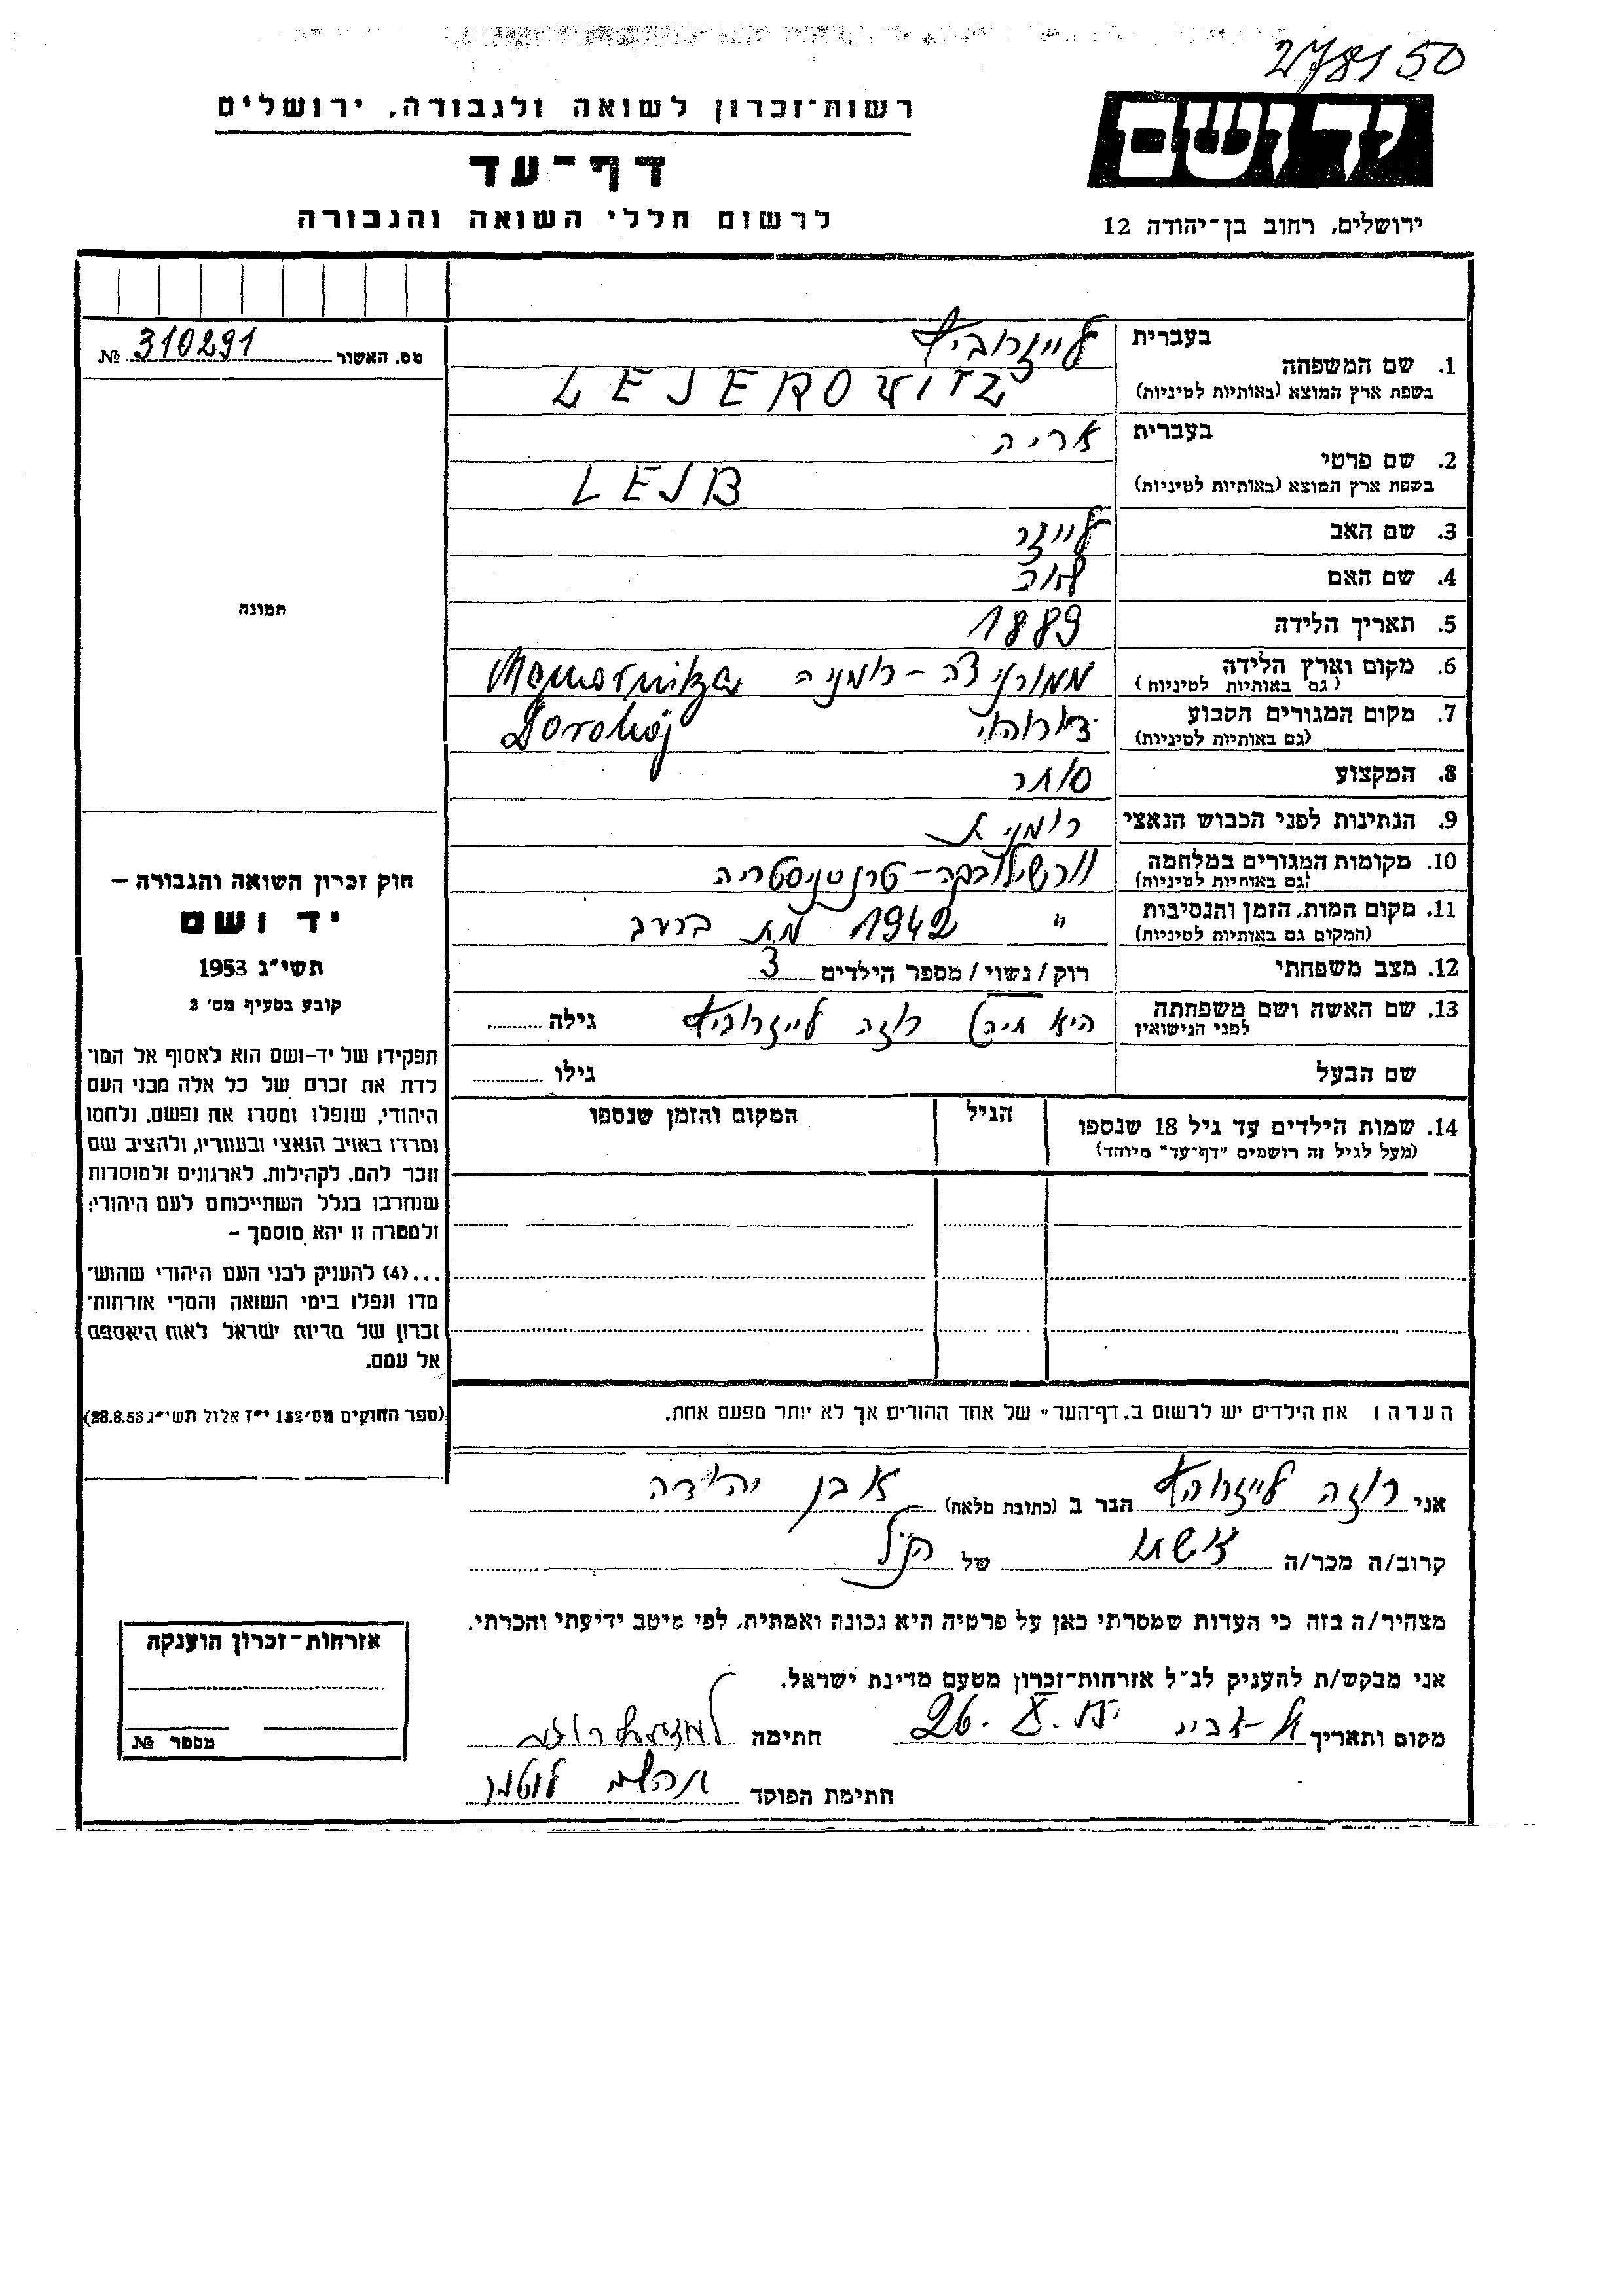 278150
רשות־זכרון לשואה ולגבורה, ירושלים
דף־עד
לרשום חללי השואה והגבורה
יד ושם
ירושלים, רחוב בן־יהודה 12
מס. האשור 310291 №
תמונה
חוק זכרון השואה והגבורה –
יד ושם
תשי״ג 1953
קובע בסעיף מס׳ 2
תפקידו של יד-ושם הוא לאסוף אל המו־
לדת את זכרם של כל אלה מבני העם
היהודי, שנפלו ומסרו את נפשם, נלחמו
ומרדו באויב הנאצי ובעוזריו, ולהציב שם
וזכר להם, לקהילות, לארגונים ולמוסדות
שנחרבו בגלל השתייכותם לעם היהודי;
ולמטרה זו יהא מוסמך –
...(4) להעניק לבני העם היהודי שהוש־
מדו ונפלו בימי השואה והמרי אזרחות־
זכרון של מדינת ישראל לאות היאספם
אל עמם.
(ספר החוקים מס׳ 132 י״ז אלול תשי״ג 28.8.53)
בעברית לייזרוביץ
1. שם המשפחה
בשפת ארץ המוצא (באותיות לטיניות) LEJEROVITZ
בעברית אריה
2. שם פרטי
בשפת ארץ המוצא (באותיות לטיניות) LEJB
3. שם האב לייזר
4. שם האם
5. תאריך הלידה 1889
6. מקום וארץ הלידה ממורניצה - רומניה Mamornitza
(גם באותיות לטיניות)
7. מקום המגורים הקבוע דורוהוי Dorohoj
(גם באותיות לטיניות)
8. המקצוע סוחר
9. הנתינות לפני הכבוש הנאצי רומנית
10. מקומות המגורים במלחמה - טרנסניסטריה
(גם באותיות לטיניות)
11. מקום המות, הזמן והנסיבות " 1942 מת ברעב
(המקום גם באותיות לטיניות)
12. מצב משפחתי רוק / נשוי / מספר הילדים 3
13. שם האשה ושם משפחתה רוזה לייזרוביץ גילה
לפני הנישואין
שם הבעל גילו
14. שמות הילדים עד גיל 18 שנספו הגיל המקום והזמן שנספו
(מעל לגיל זה רושמים "דף־עד" מיוחד)
הערה: את הילדים יש לרשום ב„דף־העד" של אחד ההורים אך לא יותר מפעם אחת.
אני רוזה לייזרוביץ הגר ב (כתובת מלאה) אבן יהודה
קרוב/ה מכר/ה אשתו של הנ"ל
מצהיר/ה בזה כי העדות שמסרתי כאן על פרטיה היא נכונה ואמתית, לפי מיטב ידיעתי והכרתי.
אני מבקש/ת להעניק לנ״ל אזרחות־זכרון מטעם מדינת ישראל.
מקום ותאריך תל אביב 26. X. חתימה
חתימת הפוקד
אזרחות־זכרון הוענקה
מספר №